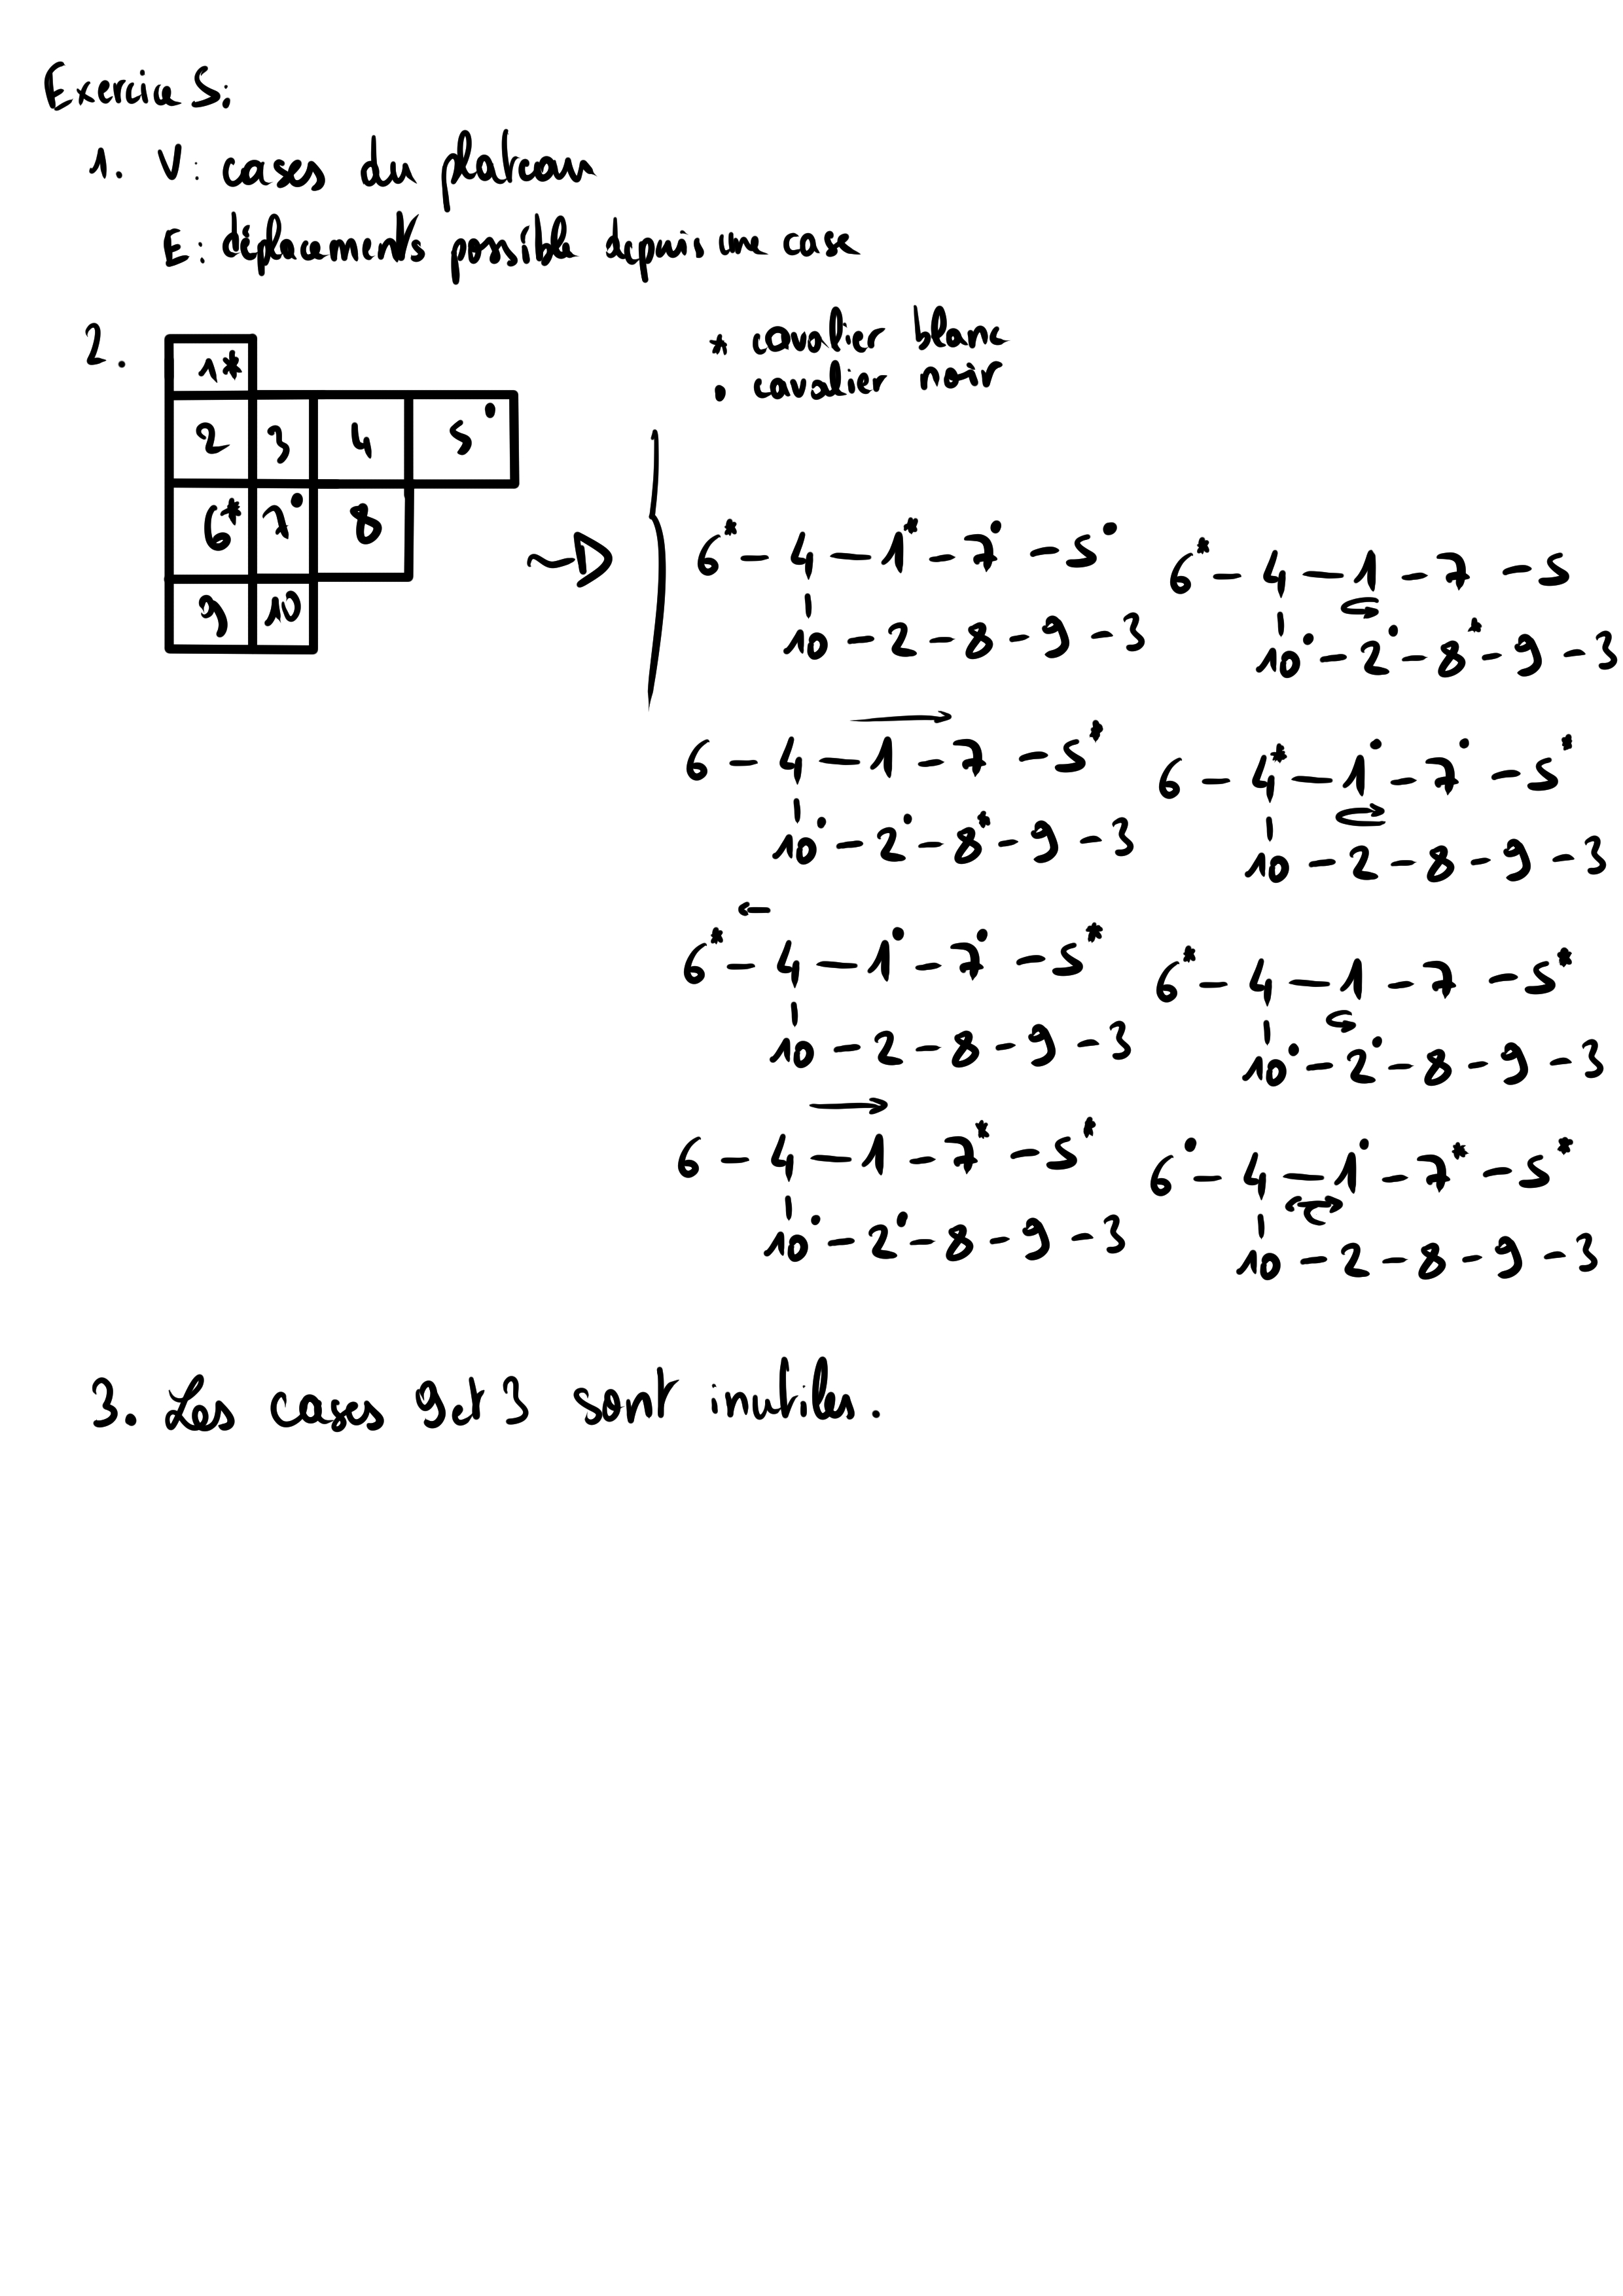 Exercice 5:
1. V: cases du plateau
E: déplacements possible depuis une case
2.
* cavalier blanc
• cavalier noir
1*
2 3 4 5•
6* 7• 8
9 10
6* - 4 - 1* - 7• - 5•
10 - 2 - 8 - 9 - 3
6* - 4 - 1 - 7 - 5
10• - 2• - 8* - 9 - 3
6 - 4 - 1 - 7 - 5*
10• - 2• - 8* - 9 - 3
6 - 4* - 1• - 7• - 5*
10 - 2 - 8 - 9 - 3
6* - 4 - 1• - 7• - 5*
10 - 2 - 8 - 9 - 3
6* - 4 - 1 - 7 - 5*
10• - 2• - 8 - 9 - 3
6 - 4 - 1 - 7* - 5*
10• - 2• - 8 - 9 - 3
6• - 4 - 1• - 7* - 5*
10 - 2 - 8 - 9 - 3
3. Les cases 9 et 3 sont inutiles.